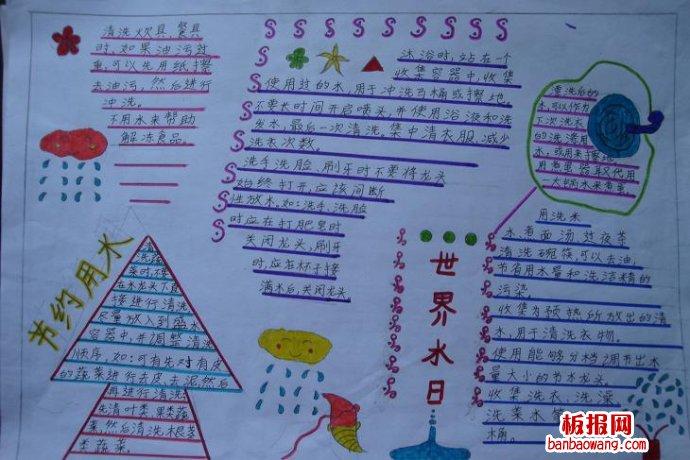 清洗炊具、餐具
时,如果油污过
重,可以先用纸擦
去油污,然后进行
冲洗。
不用水来帮助
解冻食品。
沐浴时,站在一个
收集容器中,收集
使用过的水,用于冲洗马桶或擦地。
不要长时间开启喷头,并使用浴液和洗
发水,最后一次清洗。集中清衣服,减少
洗衣次数。
洗手洗脸、刷牙时不要将龙头
始终打开,应该间断
性放水,如:洗手、洗脸
时应在打肥皂时
关闭龙头,刷牙
时,应在杯子接
满水后,关闭龙头。
清洗后的
水,可以作为
下次洗衣
的洗涤用
水,或用来擦地
用煮蛋器取代用
一大锅水来煮蛋。
节约用水
洗蔬
菜时,不
在水龙头下直
接进行清洗,
尽量放入到盛水
容器中,并调整清洗
顺序,如:可有先对有皮
的蔬菜进行去皮、去泥然后
再进行清洗
先清叶类果类蔬
菜,然后清洗根茎
类蔬菜。
世界水日
用洗米
水、煮面汤、过夜茶
清洗碗筷,可以去油,
节省用水量和洗洁精的
污染。
收集为预热所放出的清
水,用于清洗衣物。
使用能够分档调节出水
量大小的节水龙头。
收集洗衣、洗澡
洗菜水等
桶。
板报网
banbaowang.com